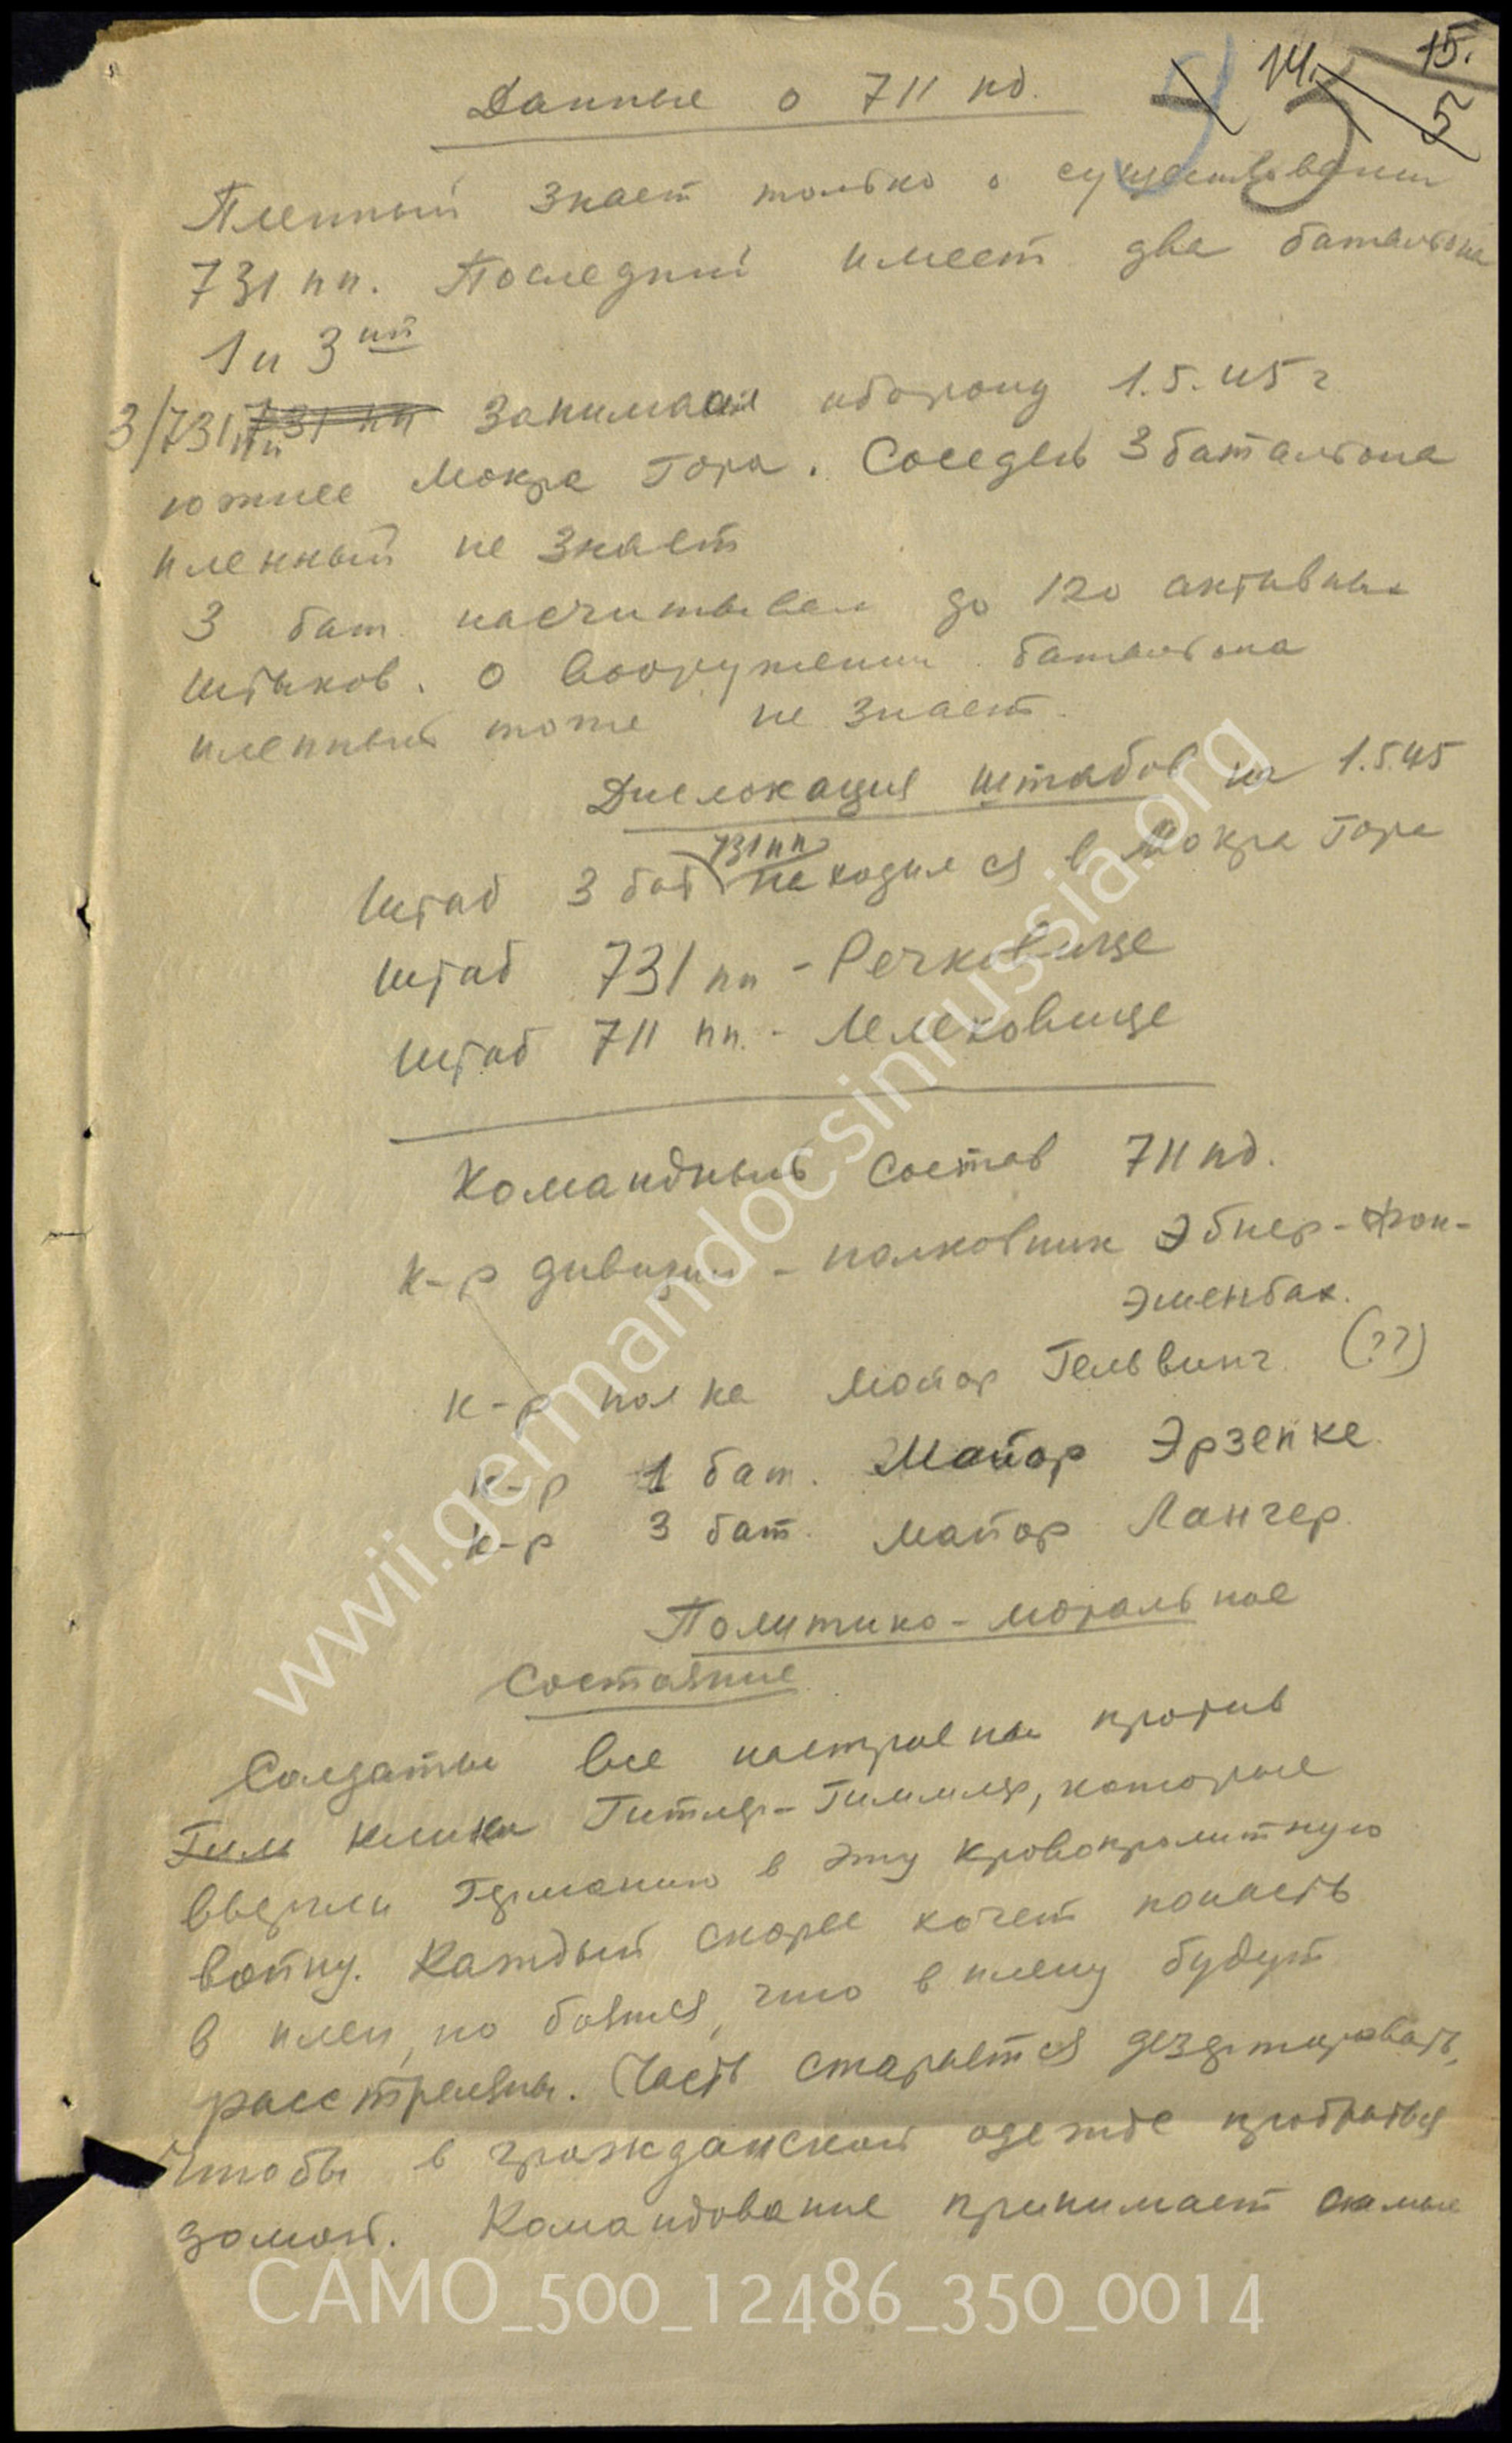 14. 15.
5
Данные о 711 пд.
Пленный знает только о существовании
731 пп. Последний имеет два батальона
1 и 3ий
3/731 пп 731 пп занимал оборону 1.5.45 г
южнее Мокра Гора. Соседей 3 батальона
пленный не знает
3 бат. насчитывал до 120 активных
штыков. О вооружении батальона
пленный тоже не знает.
Дислокация штабов на 1.5.45
731 пп
Штаб 3 бат находился в Мокра Гора
Штаб 731 пп - Речковице
Штаб 711 пп. - Лелековице
Командный состав 711 пд.
к-р дивизии - полковник Эбнер-фон-
Эшенбах.
к-р полка майор Гельвинг. (??)
к-р 1 бат. Майор Эрзепке
к-р 3 бат. майор Лангер.
Политико-моральное
Состояние
Солдаты все настроены против
Гим клики Гитлер-Гиммлер, которые
ввергли Германию в эту кровопролитную
войну. Каждый скорее хочет попасть
в плен, но боятся, что в плену будут
расстреляны. Часть старается дезертировать,
чтобы в гражданской одежде пробраться
домой. Командование принимает самые
www.germandocsinrussia.org
CAMO_500_12486_350_0014